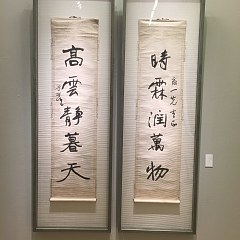 時霖潤萬物
高雲靜暮天